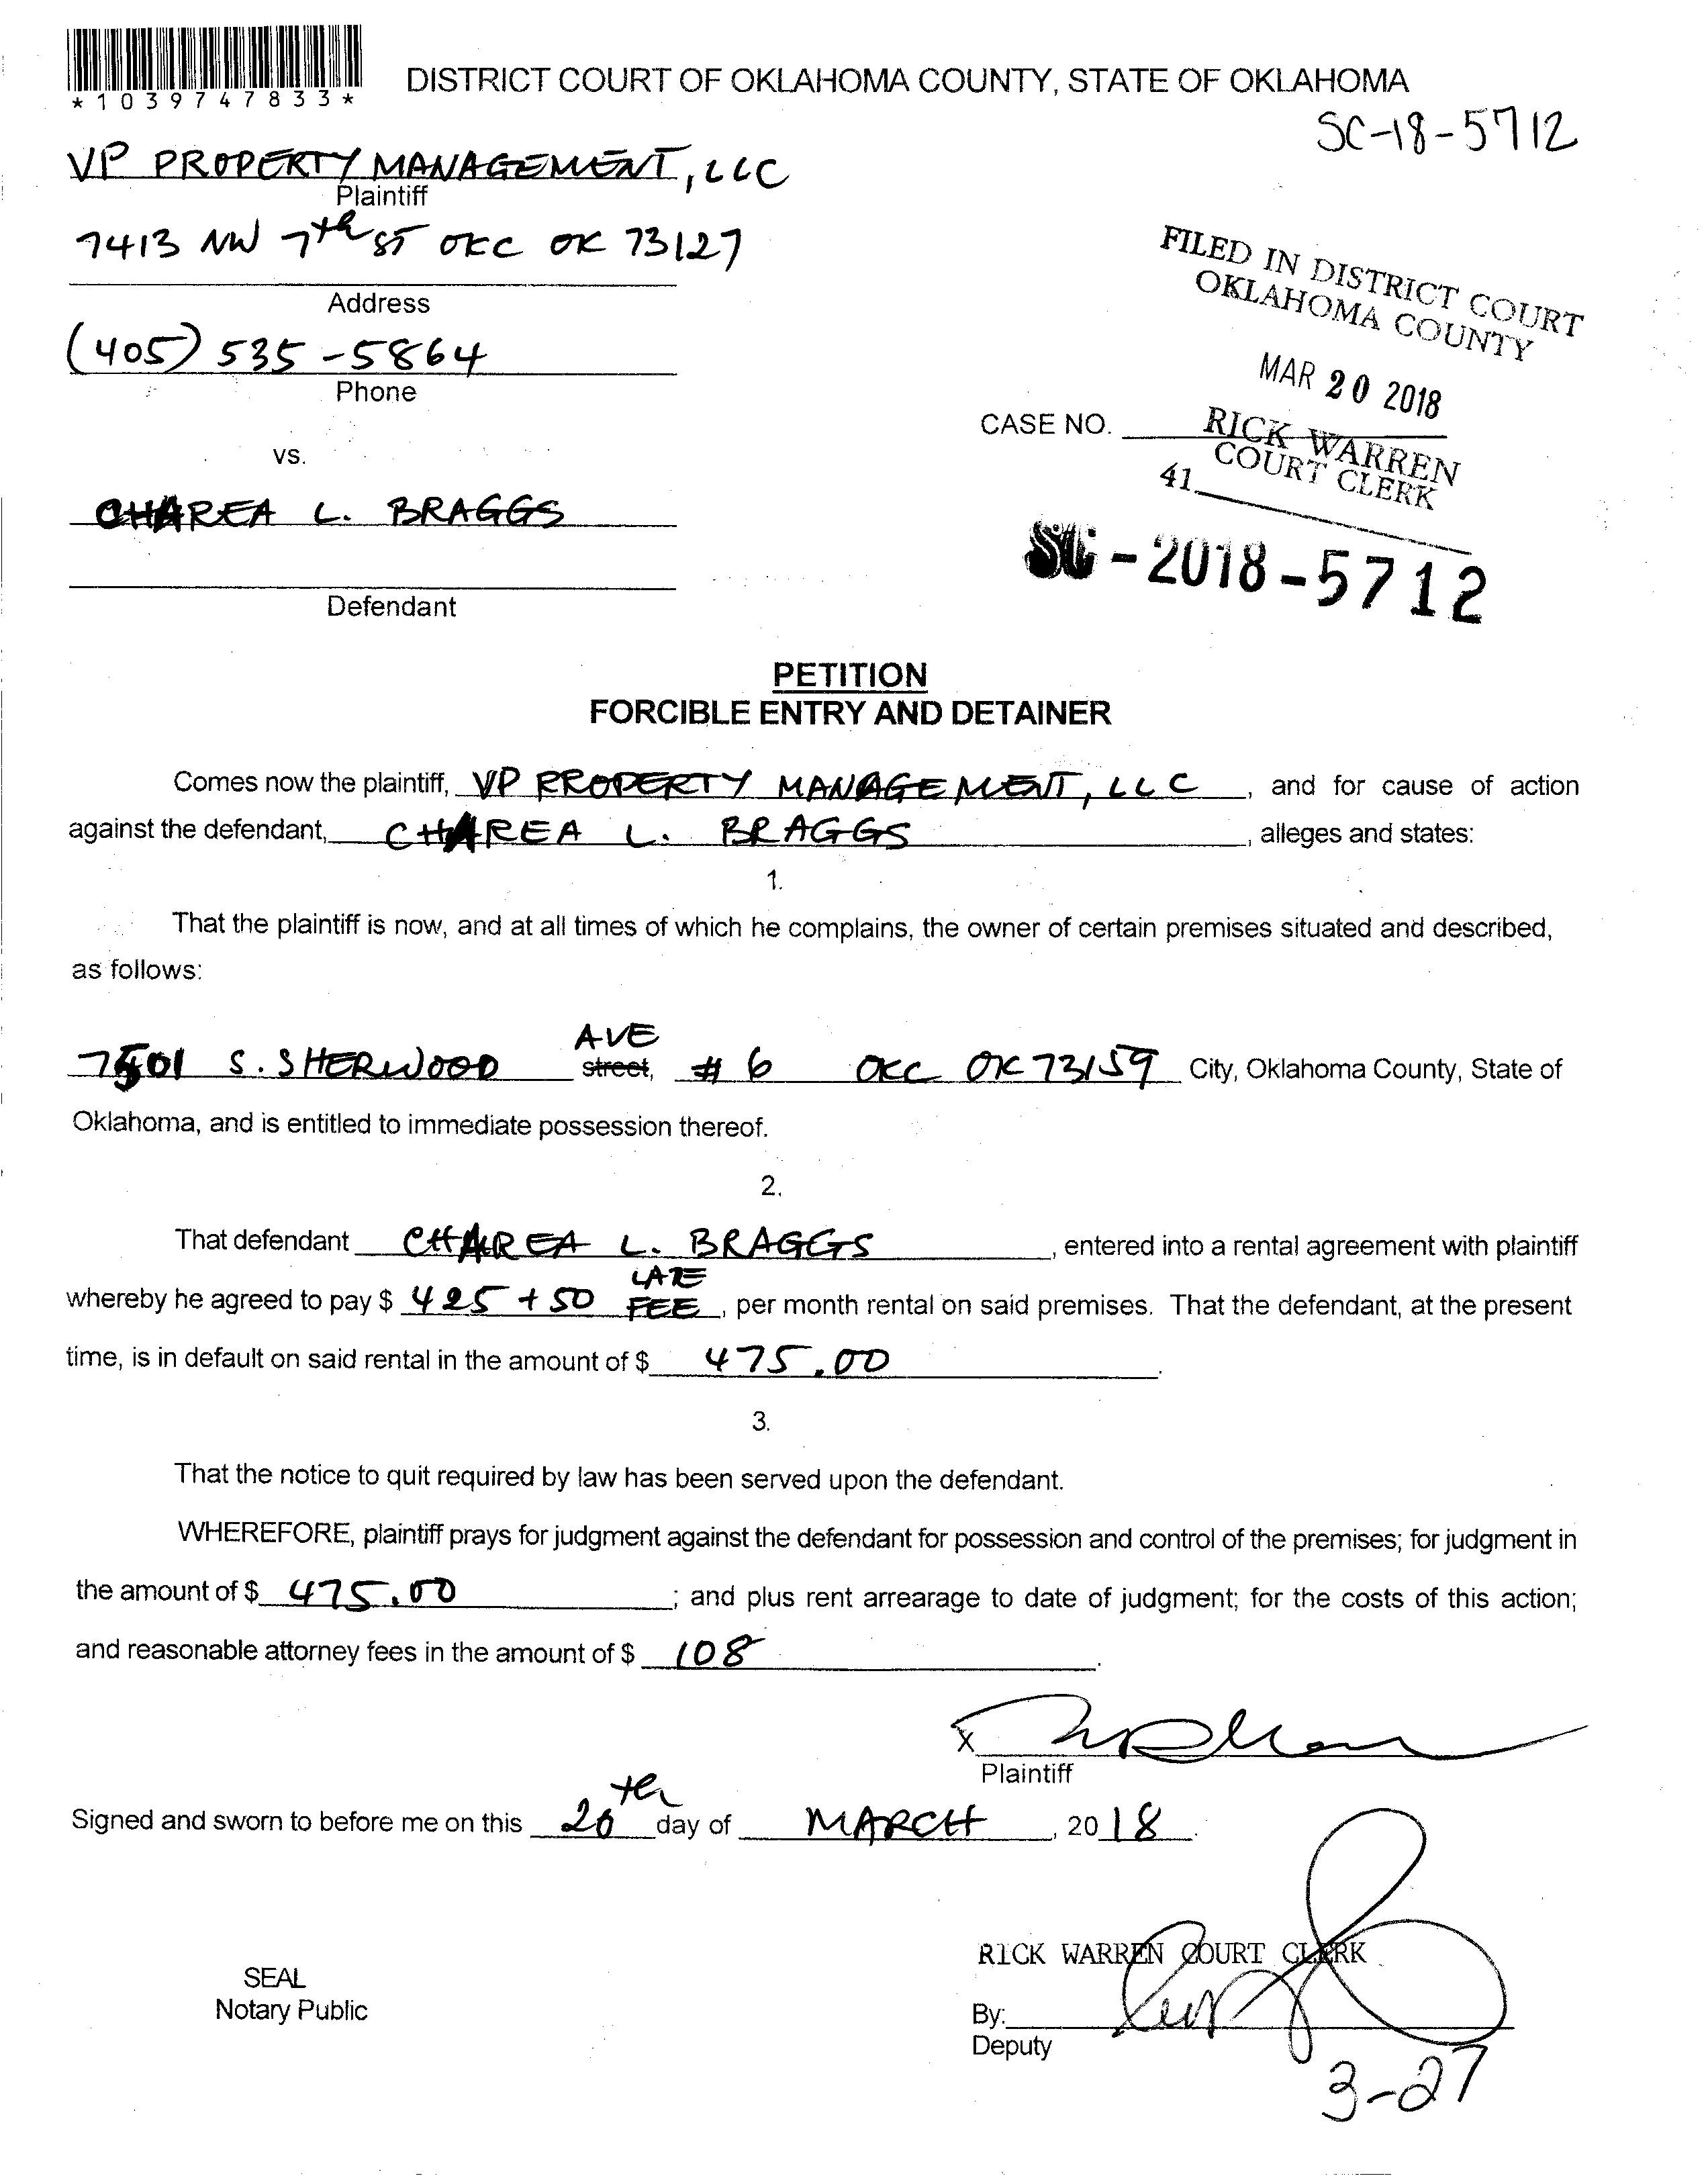 *1039747833*
DISTRICT COURT OF OKLAHOMA COUNTY, STATE OF OKLAHOMA
SC-18-5712
VP PROPERTY MANAGEMENT, LLC
Plaintiff
7413 NW 7th ST OKC OK 73127
Address
(405) 535-5864
Phone
FILED IN DISTRICT COURT
OKLAHOMA COUNTY
MAR 20 2018
CASE NO.
RICK WARREN
COURT CLERK
41
vs.
CHAREA L. BRAGGS
Defendant
SC-2018-5712
PETITION
FORCIBLE ENTRY AND DETAINER
Comes now the plaintiff, VP PROPERTY MANAGEMENT, LLC, and for cause of action
against the defendant, CHAREA L. BRAGGS, alleges and states:
1.
That the plaintiff is now, and at all times of which he complains, the owner of certain premises situated and described,
as follows:
AVE
S. SHERWOOD street, # 6 OKC OK 73159 City, Oklahoma County, State of
Oklahoma, and is entitled to immediate possession thereof.
2.
That defendant CHAREA L. BRAGGS, entered into a rental agreement with plaintiff
LATE
whereby he agreed to pay $ 425 + 50 FEE, per month rental on said premises. That the defendant, at the present
time, is in default on said rental in the amount of $ 475.00.
3.
That the notice to quit required by law has been served upon the defendant.
WHEREFORE, plaintiff prays for judgment against the defendant for possession and control of the premises; for judgment in
the amount of $ 475.00; and plus rent arrearage to date of judgment; for the costs of this action;
and reasonable attorney fees in the amount of $ 108.
X
Plaintiff
Signed and sworn to before me on this 20th day of MARCH, 2018.
RICK WARREN COURT CLERK
SEAL
Notary Public
By:
Deputy
3-27